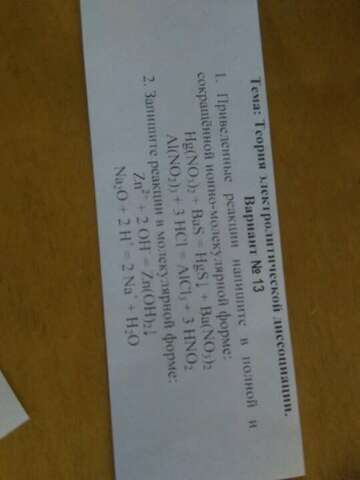 Тема: Теория электролитической диссоциации.
Вариант № 13
1. Приведенные реакции напишите в полной и
сокращённой ионно-молекулярной форме:
Hg(NO₃)₂ + BaS = HgS↓ + Ba(NO₃)₂
Al(NO₂)₃ + 3 HCl = AlCl₃ + 3 HNO₂
2. Запишите реакции в молекулярной форме:
Zn²⁺ + 2 OH⁻ = Zn(OH)₂↓
Na₂O + 2 H⁺ = 2 Na⁺ + H₂O